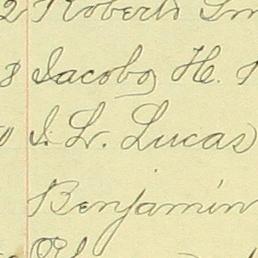 2 Roberts
8 Jacobs, H.
0 S. W. Lucas
Benjamin